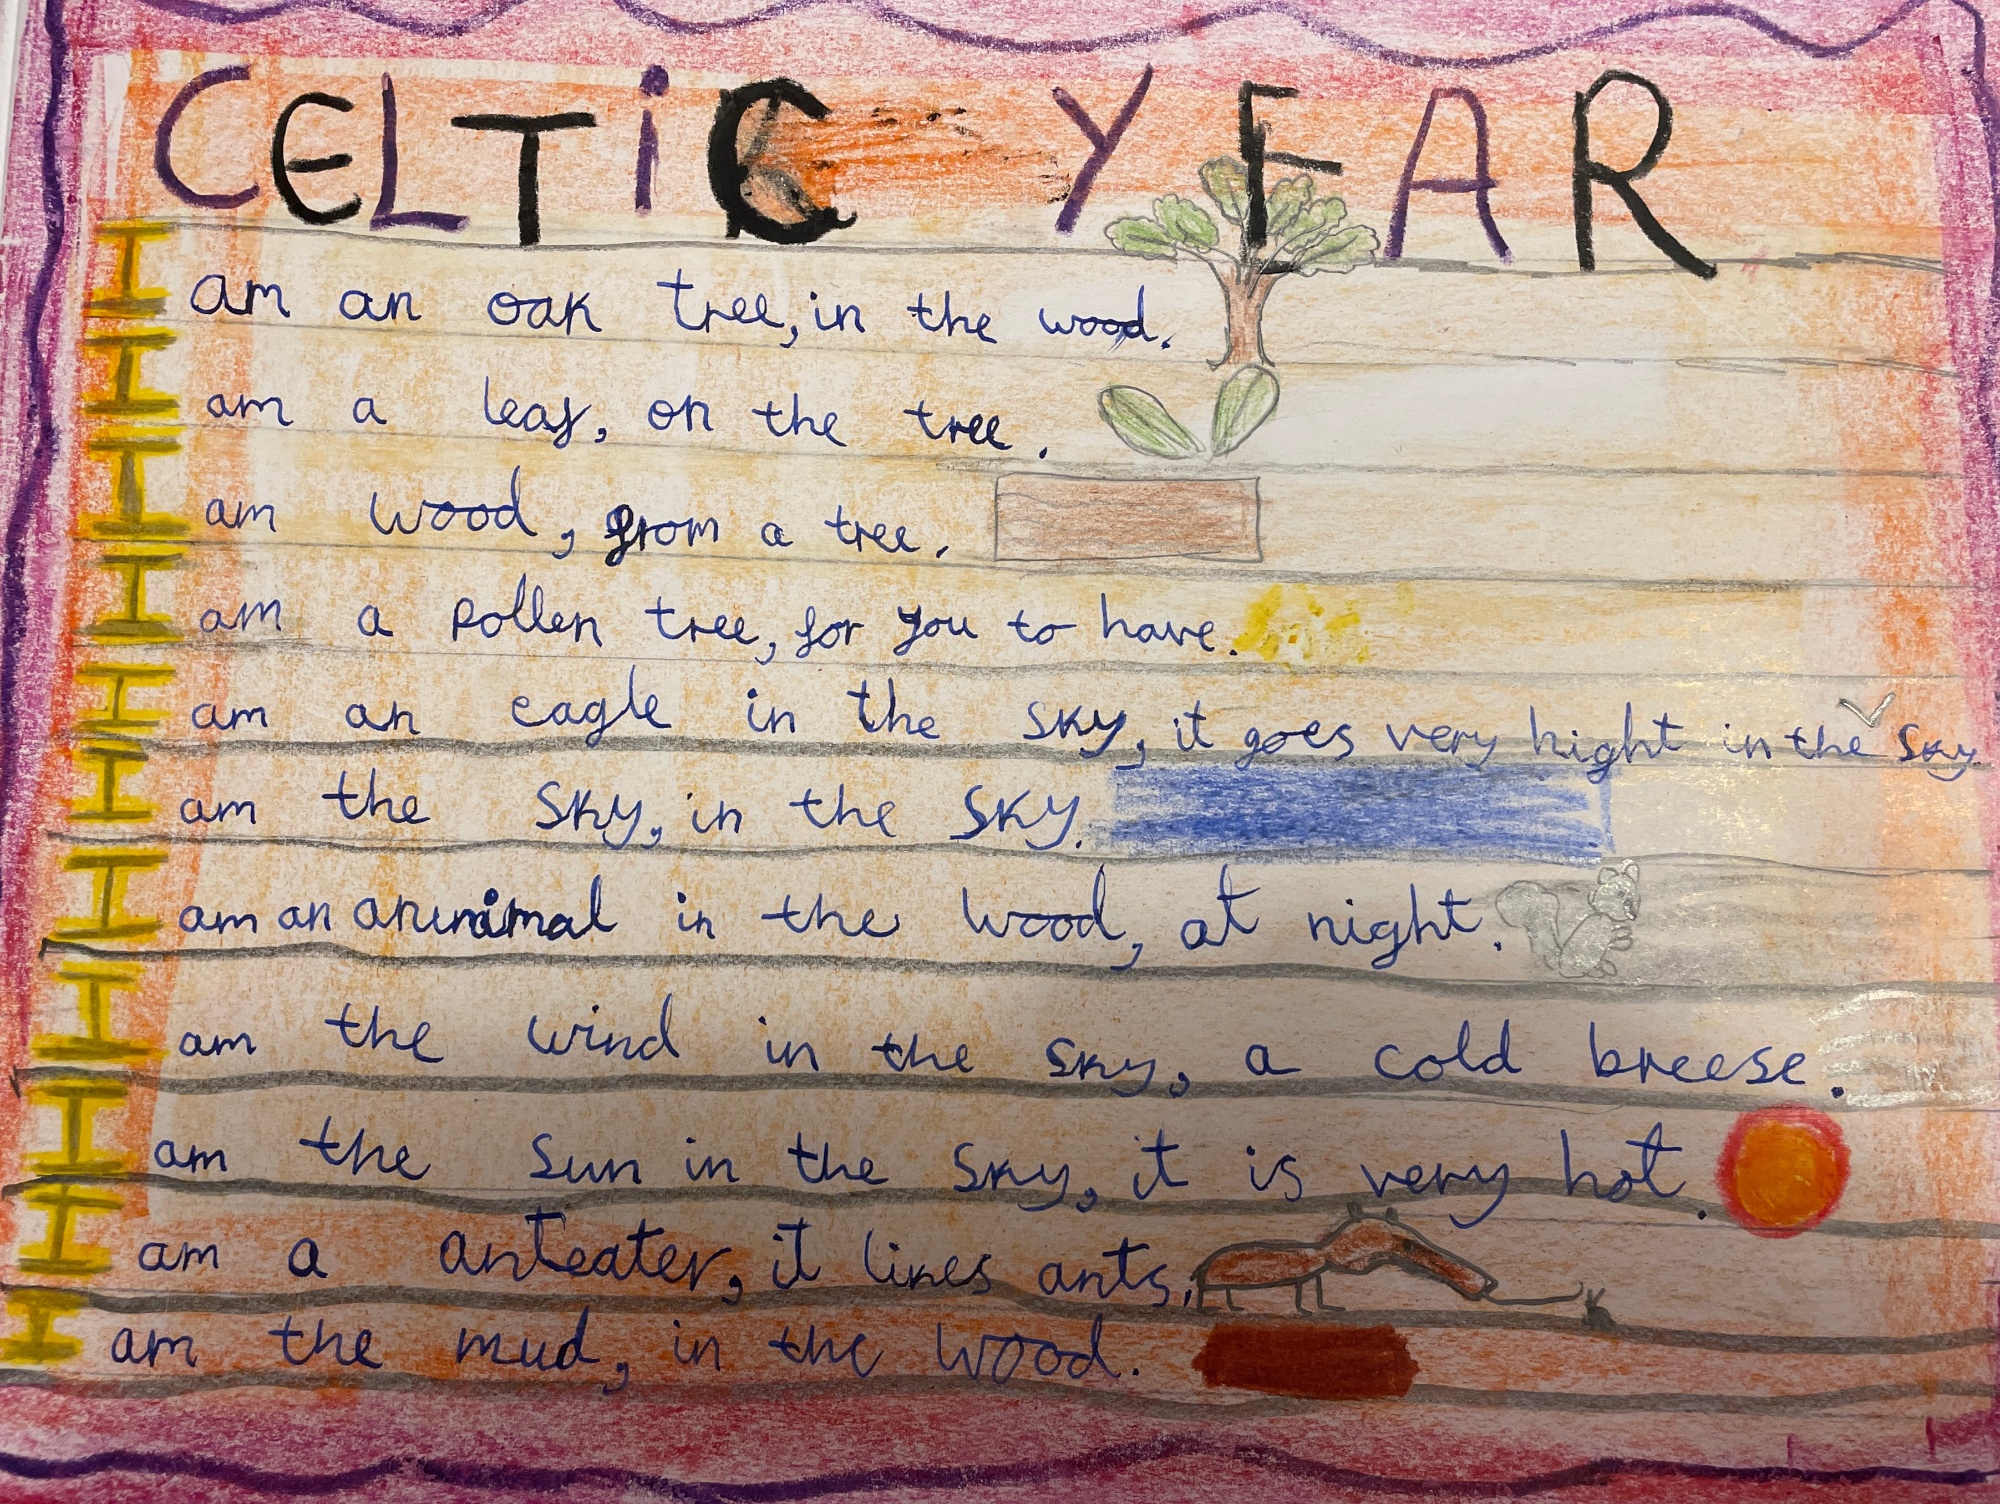 CELTiC YEAR
I am an oak tree, in the wood.
I am a leaf, on the tree.
I am wood, from a tree.
I am a pollen tree, for you to have.
I am an eagle in the sky, it goes very hight in the sky.
I am the sky, in the sky.
I am an animal in the wood, at night.
I am the wind in the sky, a cold breese.
I am the sun in the sky, it is very hot.
I am a anteater, it likes ants.
I am the mud, in the wood.